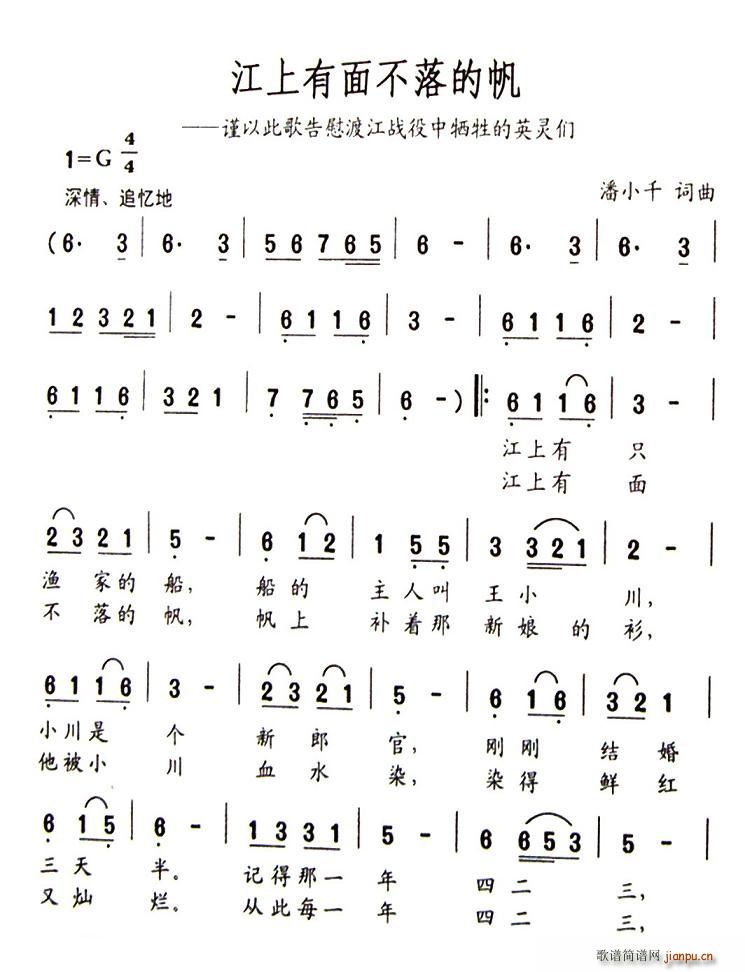 江上有面不落的帆
——谨以此歌告慰渡江战役中牺牲的英灵们
1=G 4/4
深情、追忆地
潘小千 词曲
(6· 3 | 6· 3 | 5 6 7 6 5 | 6 - | 6· 3 | 6· 3 |
1 2 3 2 1 | 2 - | 6 1 1 6 | 3 - | 6 1 1 6 | 2 - |
6 1 1 6 | 3 2 1 | 7 7 6 5 | 6 - ) ‖: 6 1 1 6 | 3 - |
江上有 只
江上有 面
2 3 2 1 | 5 - | 6 1 2 | 1 5 5 | 3 3 2 1 | 2 - |
渔 家的 船, 船的 主人叫 王小 川,
不 落的 帆, 帆上 补着那 新娘的 衫,
6 1 1 6 | 3 - | 2 3 2 1 | 5 - | 6 1 6 | 3 2 1 |
小川是 个 新郎 官, 刚刚 结婚
他被小 川 血水 染, 染得 鲜红
6 1 5 | 6 - | 1 3 3 1 | 2 - | 6 6 5 3 | 5 - |
三天 半。 记得那一 年 四二 三,
又灿 烂。 从此每一 年 四二 三,
歌谱简谱网
jianpu.cn